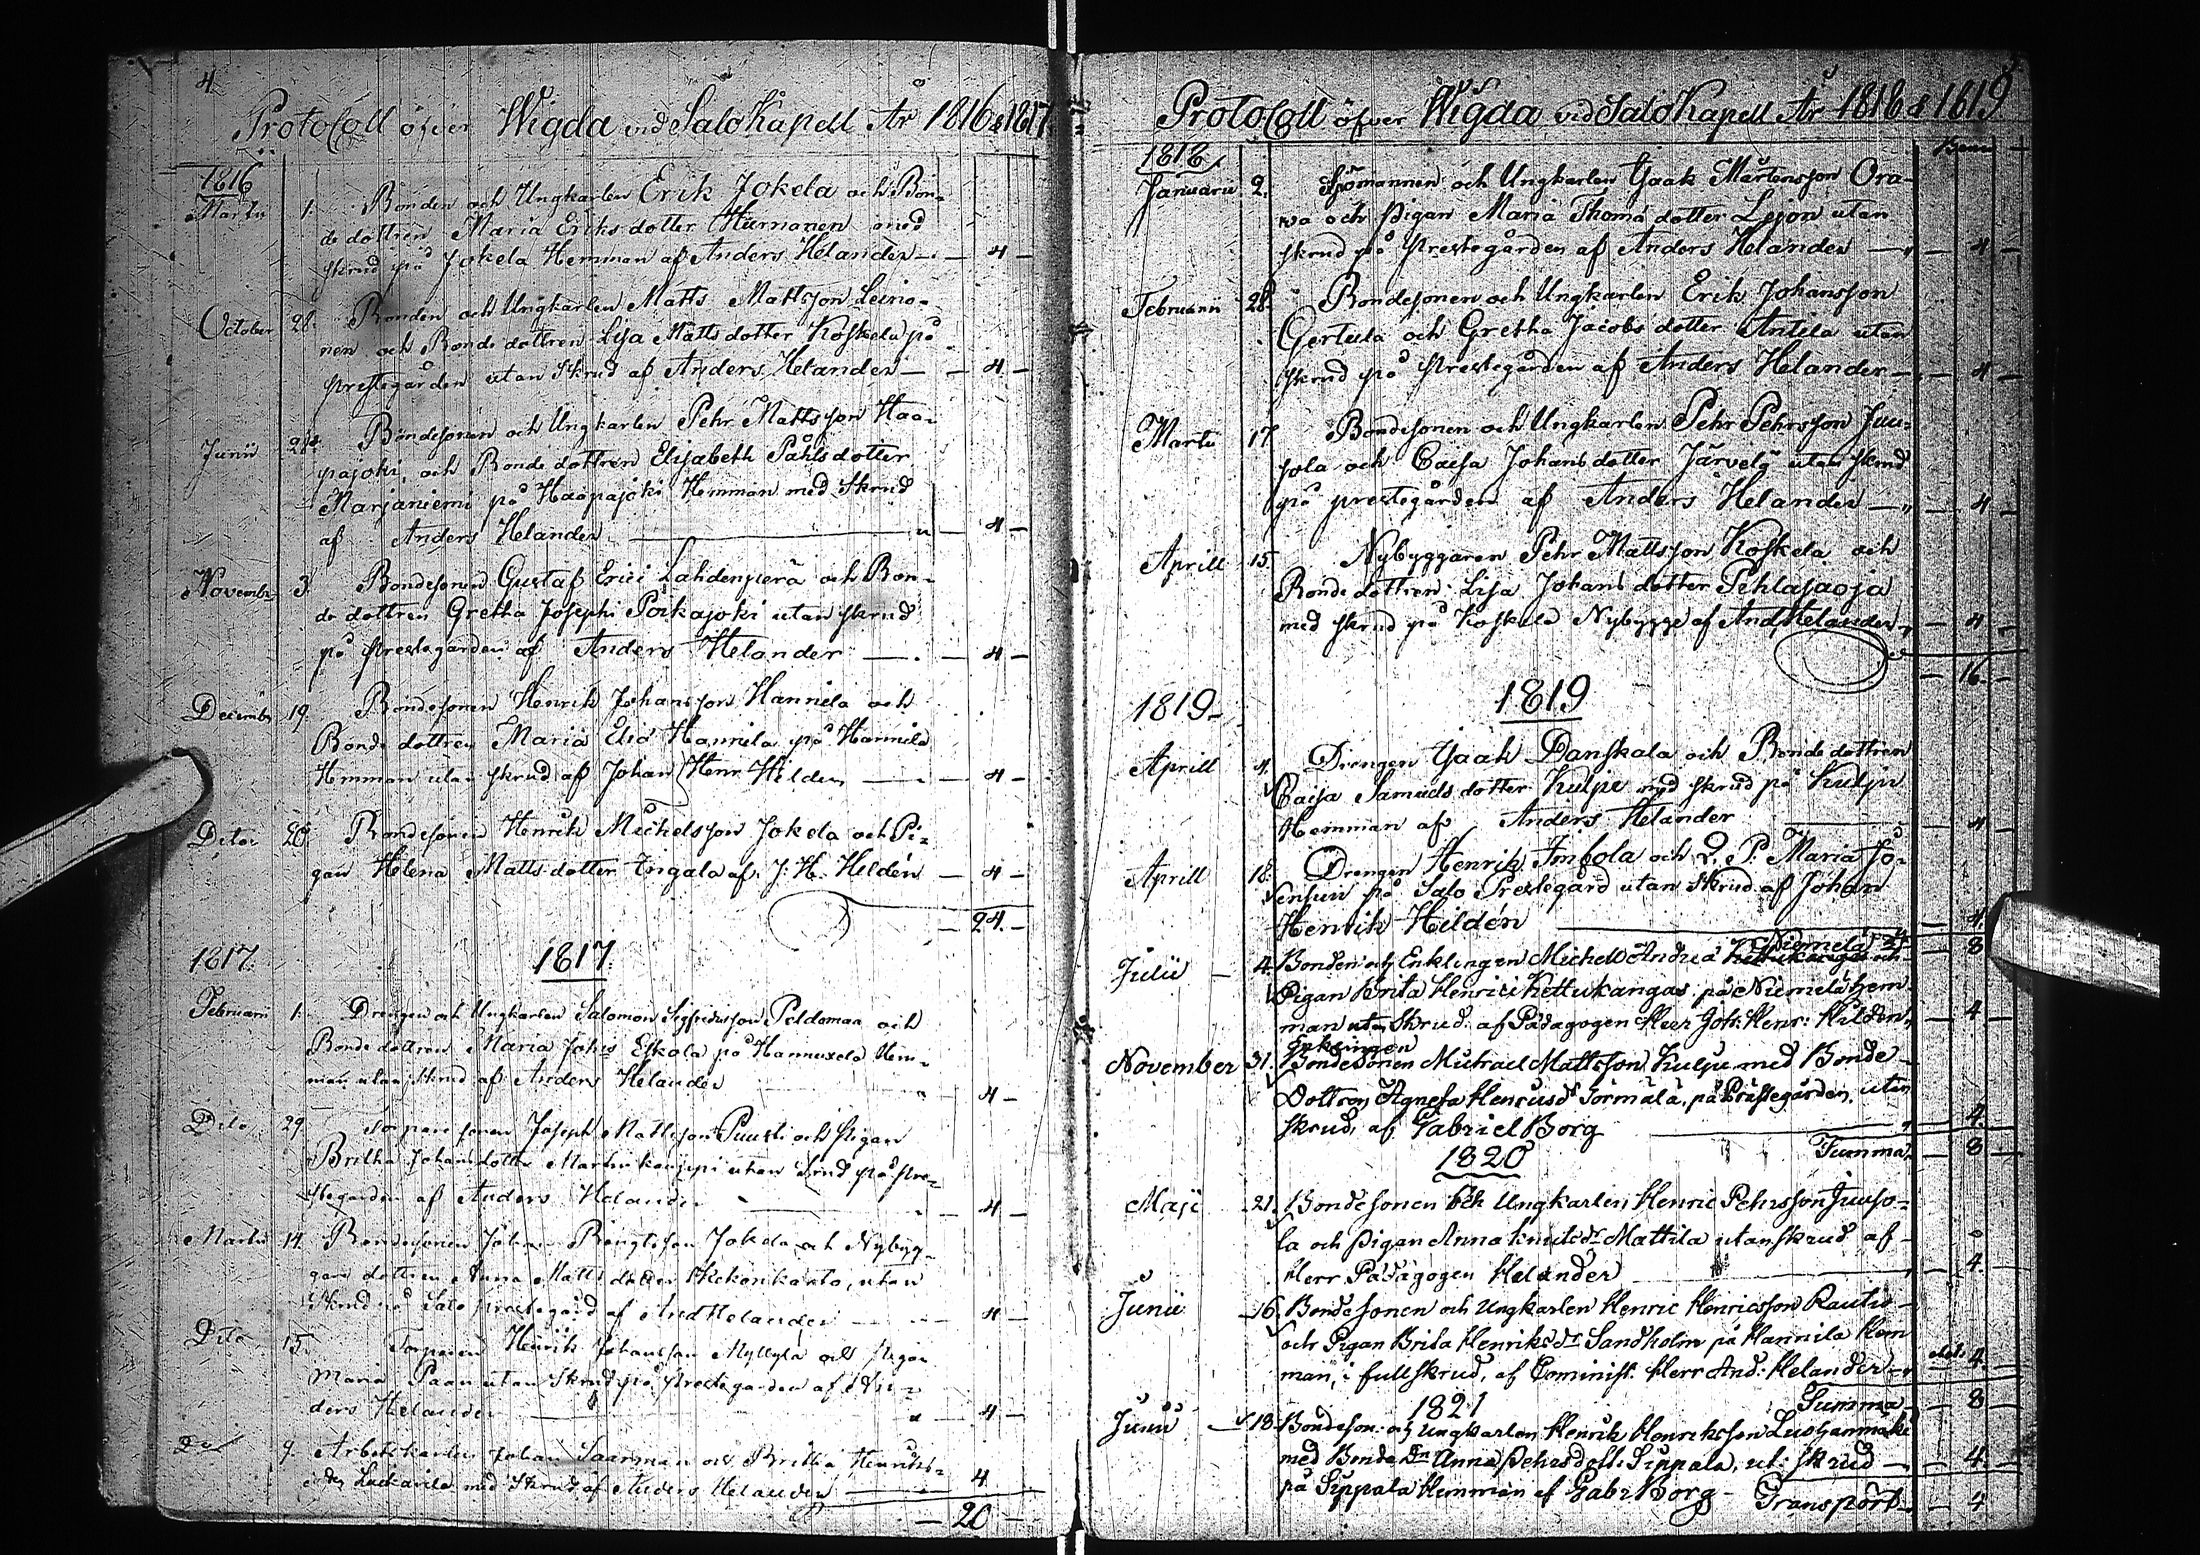 4
Protocoll öfver Wigda vid Salo Kapell År 1816 & 1817.
1816
Martii 1. Bonden och Ungkarlen Erik Jokela och Bon-
de dottren Maria Eriks dotter Hurnanen med
skrud på Jokela Hemman af Anders Helander — 4 —
October 28. Bonden och Ungkarlen Matts Mattsson Leino-
nen och Bonde dottren Lisa Matts dotter Koskela på
prestegården utan skrud af Anders Helander — 4 —
Junii 28. Bondesonen och Ungkarlen Pehr Mattsson Haa-
pajoki, och Bonde dottren Elisabeth Påhls dotter
Marjaniemi på Haapajoki Hemman med Skrud
af Anders Helander — 4 —
November 3. Bondesonen Gustaf Erici Lahdenperä och Bon-
de dottren Gretha Josephi Poikajoki utan skrud
på prestegården af Anders Helander — 4 —
December 19. Bondesonen Henrik Johansson Hannila och
Bonde dottren Maria Eliæ Hannila på Hannila
Hemman utan skrud af Johan Henr. Hilden — 4 —
Dito 26. Bondesonen Henrik Michelsson Jokela och Pi-
gan Helena Matts dotter Tingala af J: H. Heldén — 4 —
24. —
1817. 1817.
Februarii 1. Drengen och Ungkarlen Salomon Sigfredsson Peldomaa och
Bonde dottren Maria Johs Eskola på Hannuxela Hem-
man utan skrud af Anders Helander — 4 —
Dito 29. Torpare sonen Joseph Mattsson Puusti och Pigan
Britha Johans dotter utan Skrud på pre-
stegården af Anders Helander — 4 —
Martii 14. Bondesonen Johan Bengtsson Jokela och Nybyg-
gare dottren Anna Matts dotter utan
Skrud på Salo prestegård af And Helander — 4 —
Dito 15. Torparen Henrik Johansson Myllylä och Pigan
Maria Paan utan Skrud på prestegården af An-
ders Helander — 4 —
9. Arbetskarlen Johan Saarman och Britha Henriks-
med Skrud af Anders Helander — 4
— 20 —
Protocoll öfver Wigda vid Salo Kapell År 1818 & 1819
1818
Januarii 2. Sjömannen och Ungkarlen Isaak Mårtensson Ora-
va och Pigan Maria Thomæ dotter Lejon utan
skrud på Prestegården af Anders Helander — 4 —
Februarii 28. Bondesonen och Ungkarlen Erik Johansson
Gertula och Gretha Jacobs dotter Antila utan
skrud på Prestegården af Anders Helander — 4 —
Martii 17. Bondesonen och Ungkarlen Pehr Pehrsson Juu-
sola och Caisa Johans dotter Järvelä utan skrud
på prestegården af Anders Helander — 4 —
Aprill 15. Nybyggaren Pehr Mattsson Koskela och
Bonde dottren Lisa Johans dotter Pehlajaoja
med skrud på Koskela Nybygge af And Helander — 4 —
— 16. —
1819 — 1819
Aprill 4. Drengen Isaak Danskala och Bonde dottren
Caisa Samuels dotter Kulju med skrud på Kulju
Hemman af Anders Helander — 4 —
Aprill 18. Drengen Henrik Infola och Q. P. Maria Jo-
ensuu på Salo Prestegård utan Skrud af Johan
Henrik Hildén — 4.
Niemelä — 8
Julii — 4. Bonden och Enklingen Michel Andreæ Kettukangas och
Pigan Brita Henrici Kettukangas på Niemelä Hem
man utan Skrud af Pädagogen Herr Joh: Henr: Hildén — 4 —
November 31. Bondesonen Michael Mattsson Kulju med Bonde
Dottren Agnesa Henricusdr Sörmälä, på Prästegården, utan
skrud, af Gabriel Borg — 4.
1820 Summa — 8 —
Maji 21. Bondesonen och Ungkarlen Henric Pehrsson Juuso-
la och Pigan Anna Knutsdr Mattila utan skrud af
Herr Pädagogen Helander — 4. —
Junii 16. Bondesonen och Ungkarlen Henric Henricsson Rautio
och Pigan Brita Henriksdr Sandholm på Hannila Hem
man, i full skrud, af Cominist: Herr And: Helander — 4.
1821 Summa — 8 —
Junii 18. Bondeson: och Ungkarlen Henrik Henriksson Luohanmäki
med Bonde Dr Anna Pehrsdott: Sippala, ut: skrud — 4. —
på Sippala Hemman af Gabr Borg Transport — 4